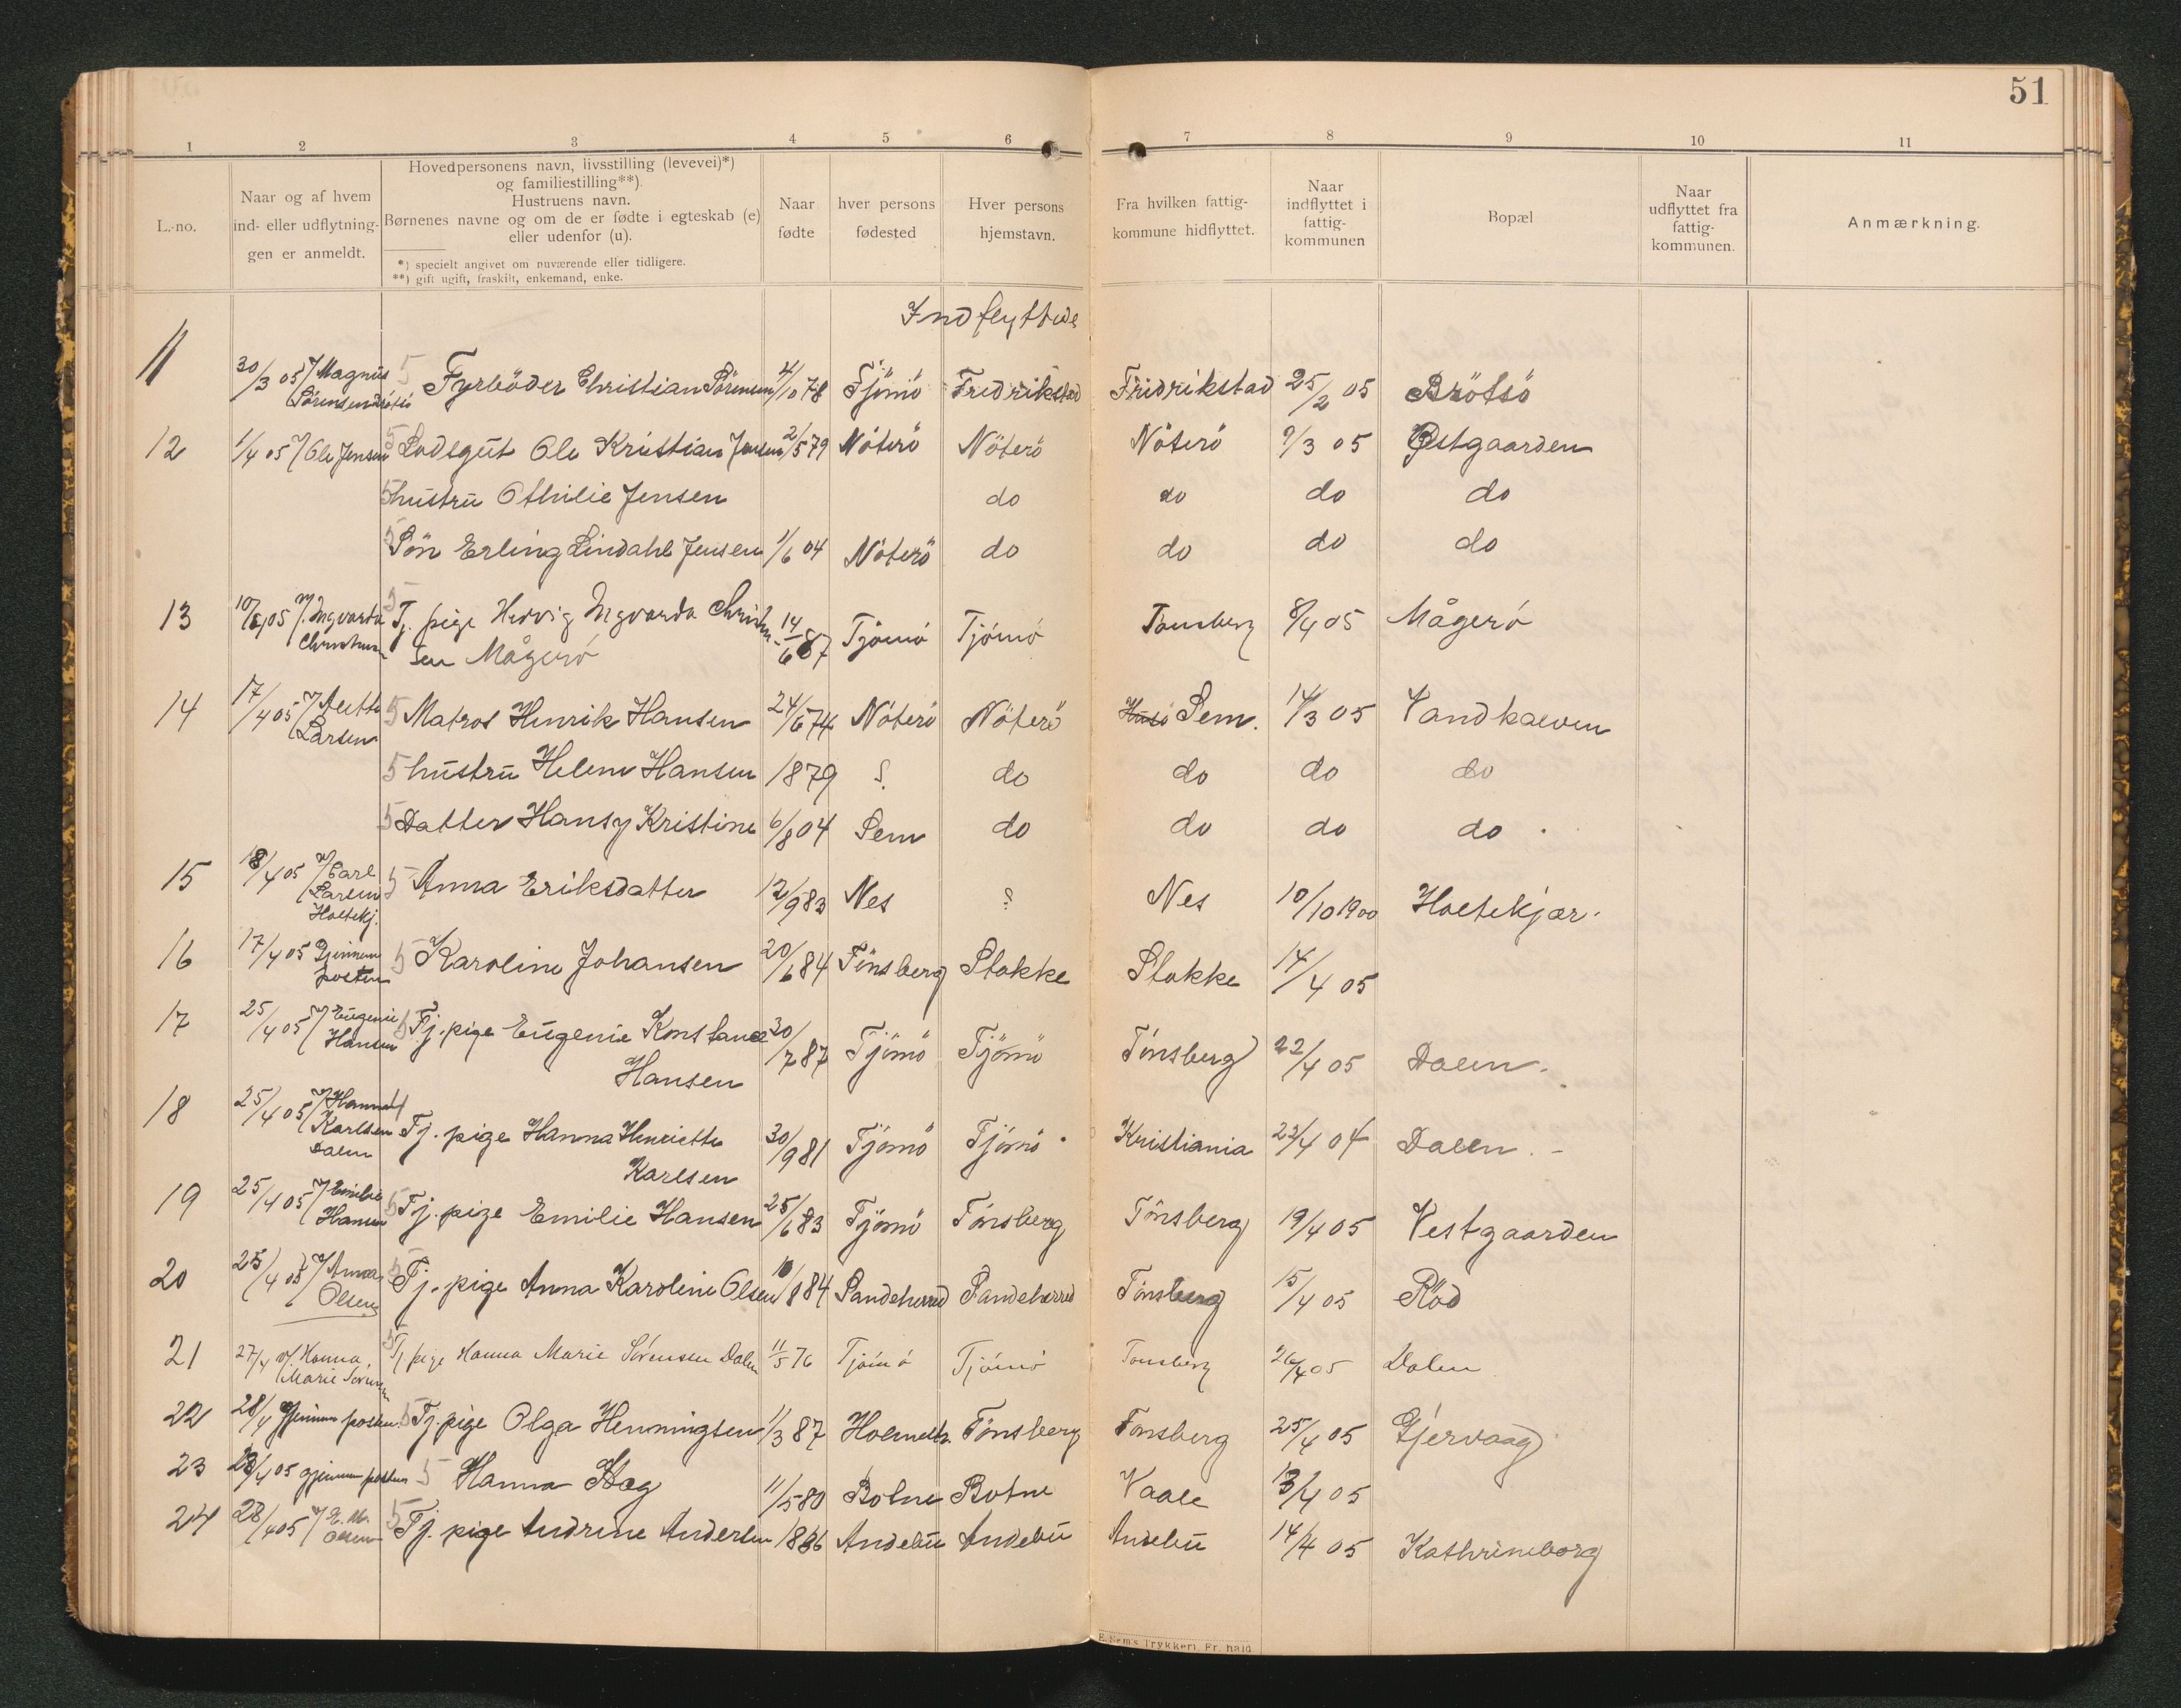 51
1 2 3 4 5 6 7 8 9 10 11
L.-no.
Naar og af hvem
ind- eller udflytnin-
gen er anmeldt.
Hovedpersonens navn, livsstilling (levevei)*)
og familiestilling**).
Hustruens navn.
Børnenes navne og om de er fødte i egteskab (e)
eller udenfor (u).
*) specielt angivet om nuværende eller tidligere.
**) gift ugift, fraskilt, enkemand, enke.
Naar
fødte
hver persons
fødested
Hver persons
hjemstavn.
Fra hvilken fattig-
kommune hidflyttet.
Naar
indflyttet i
fattig-
kommunen
Bopæl
Naar
udflyttet fra
fattig-
kommunen.
Anmærkning.
Indflyttede
11 30/3 05 Magnus Sörensen Brötsö 5 Fyrböder Christian Sörensen 4/10 78 Tjömö Fredrikstad Fridrikstad 25/2 05 Brötsö
12 1/4 05 Ole Jensen 5 Lodsgut Ole Kristian Jensen 2/5 79 Nöterö Nöterö Nöterö 9/3 05 Østgaarden
5 hustru Othilie Jensen do do do do
5 Sön Erling Lindahl Jensen 1/6 04 Nöterö do do do do
13 10/5 05 v. Ingvarda Christensen 5 Tj. pige Hedvig Ingvarda Christen-
sen Mågerö 14/6 87 Tjömö Tjömö Tönsberg 8/4 05 Mågerö
14 17/4 05 Larsen 5 Matros Henrik Hansen 24/5 74 Nöterö Nöterö Husö Sem. 14/3 05 Vandkalven
5 hustru Helene Hansen 1879 ? do do do do
5 Datter Hansy Kristine 6/8 04 Sem do do do do
15 18/4 05 Carl Larsen Holtekj. 5 Anna Eriksdatter 12/9 83 Nes ? Nes 10/10 1900 Holtekjær.
16 17/4 05 Gjennem posten 5 Karoline Johansen 20/6 84 Tönsberg Stokke Stokke 14/4 05
17 25/4 05 Eugenie Hansen 5 Tj. pige Eugenie Konstance
Hansen 30/7 87 Tjömö Tjömö Tönsberg 22/4 05 Dalen.
18 25/4 05 Hanna Karlsen Dalen Tj. pige Hanna Henriette
Karlsen 30/9 81 Tjömö Tjömö Kristiania 23/4 04 Dalen.
19 25/4 05 Emilie Hansen 5 Tj. pige Emilie Hansen 25/6 83 Tjömö Tönsberg Tönsberg 19/4 05 Vestgaarden
20 25/4 05 Anna Olsen 5 Tj. pige Anna Karoline Olsen 10/8 84 Sandeherred Sandeherred Tönsberg 15/4 05 Röd
21 27/4 v. Hanna Marie Sörensen 5 Tj pige Hanna Marie Sörensen Dalen 11/5 76 Tjömö Tjömö Tönsberg 26/4 05 Dalen
22 28/4 Gjennem posten 5 Tj. pige Olga Henningsen 1/3 87 Holmestr. Tönsberg Tönsberg 25/4 05 Gjervaag
23 28/4 05 gjennem posten 5 Hanna Hog 11/5 80 Botne Botne Vaale 13/4 05
24 28/4 05 Olsen 5 Tj. pige Andrine Andersen 1886 Andebu Andebu Andebu 14/4 05 Kathrineborg
E. Sem's Trykkeri, Fr. hald